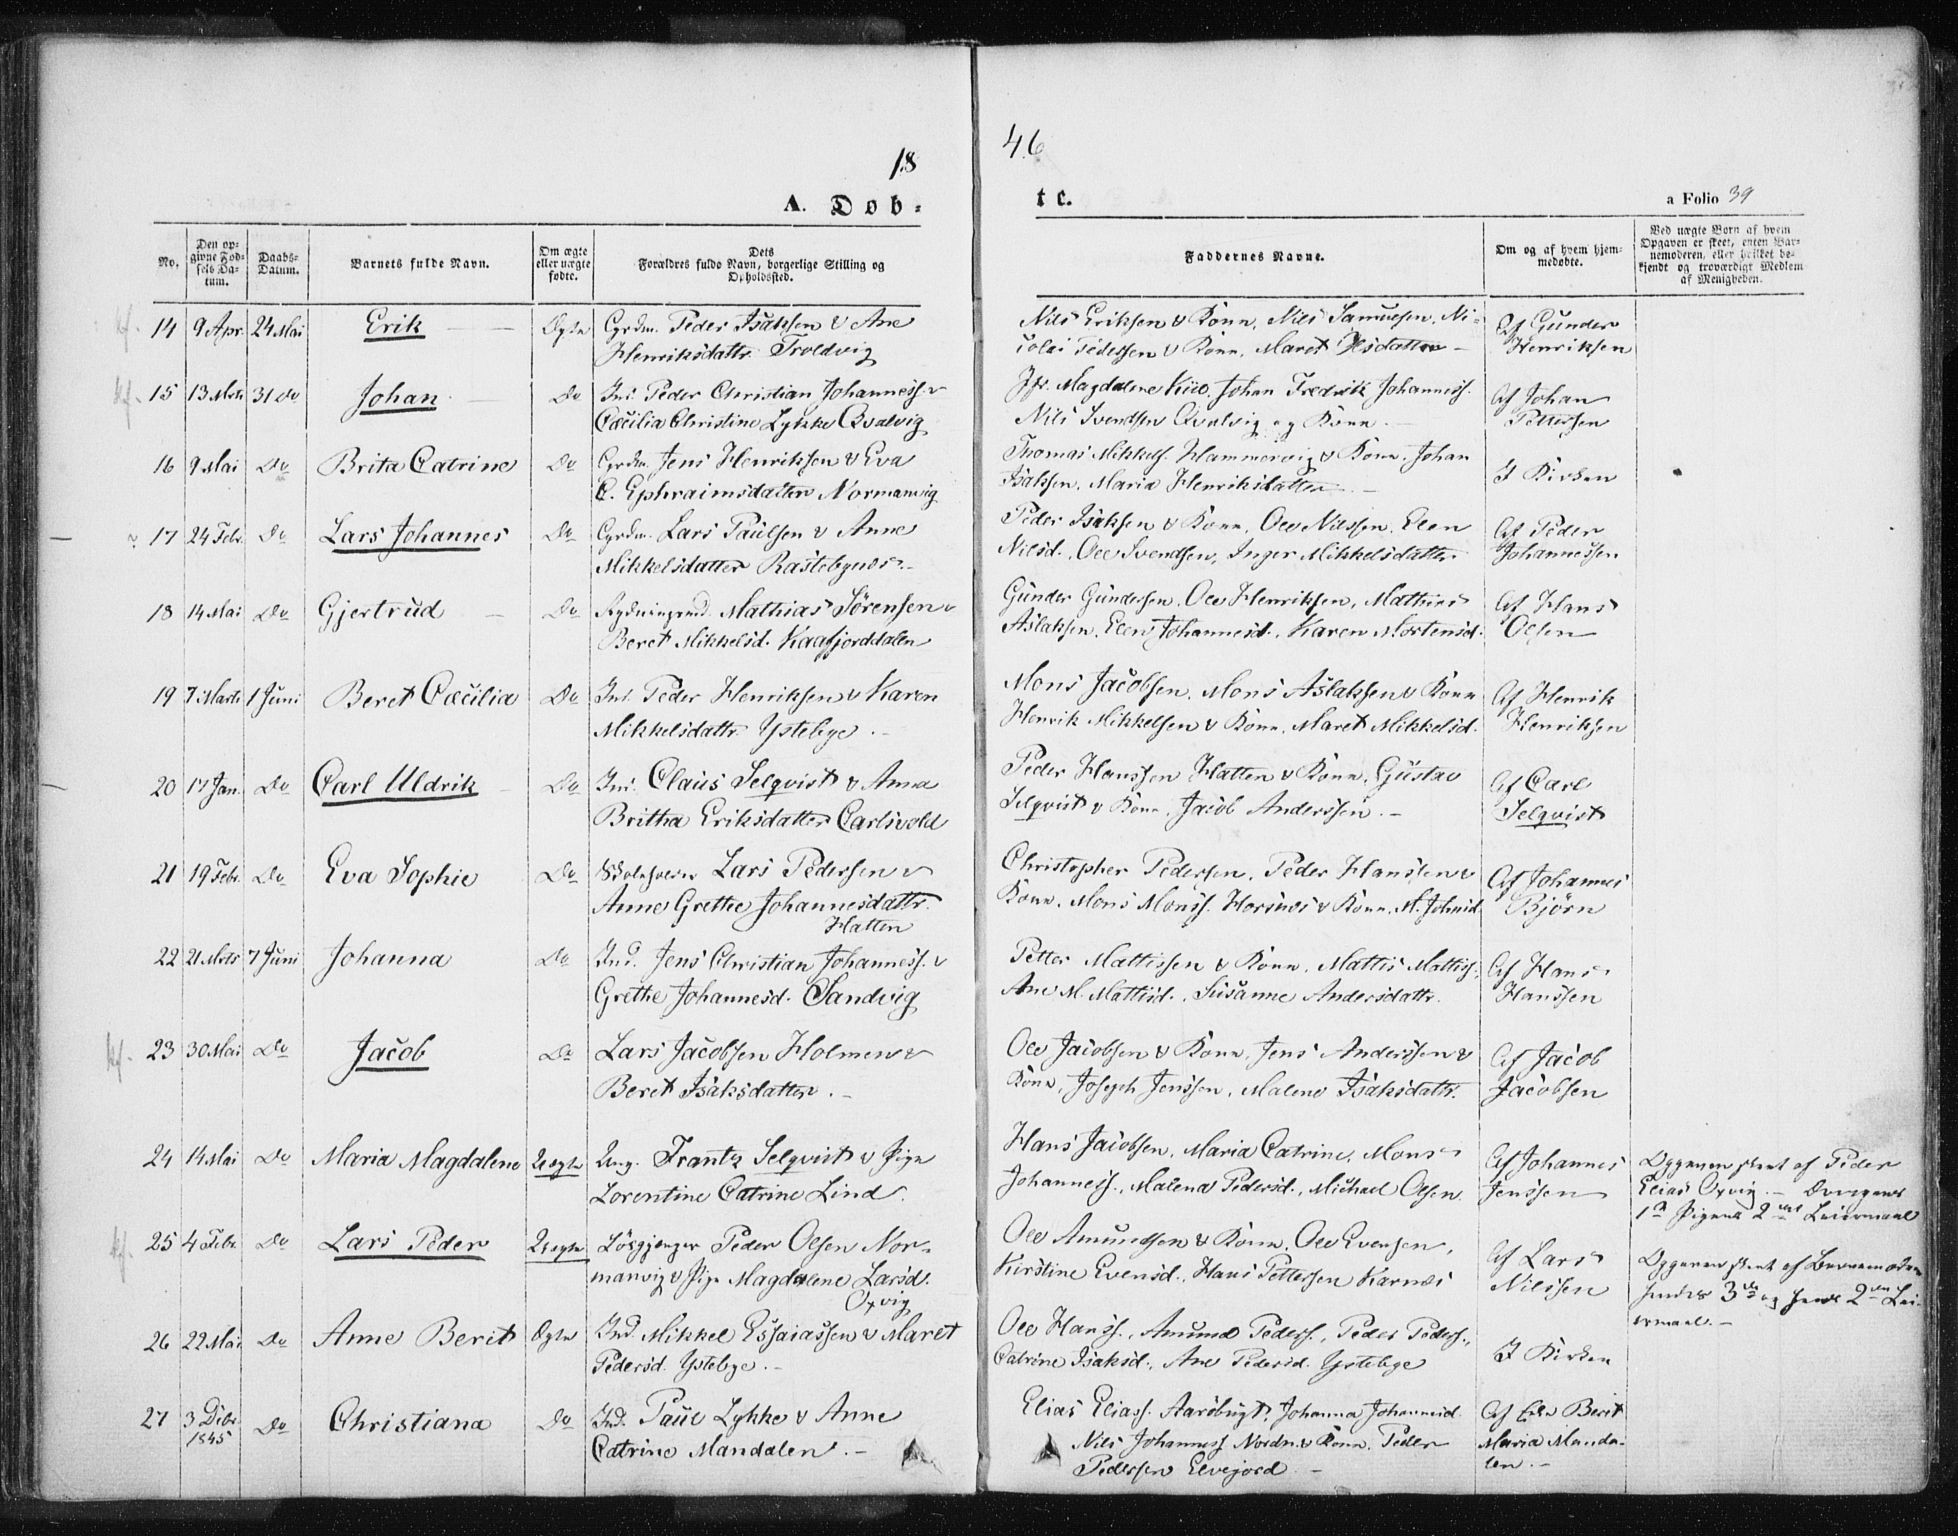 18 46
A. Døb-
te.
a Folio 39
No.
Den op-
givne Fød-
sels Da-
tum.
Daabs-
Datum.
Barnets fulde Navn.
Om ægte
eller uægte
fødte.
Dets
Forældres fulde Navn, borgerlige Stilling og
Opholdssted.
Faddernes Navne.
Om og af hvem hjem-
medøbte.
Ved uægte Børn af hvem
Opgaven er skeet, enten Bar-
nemoderen, eller hvilket be-
kjendt og troværdigt Medlem
af Menigheden.
14 9 Apr. 24 Mai Erik Ægte Grdm. Peder Isaksen & Ane
Henriksdattr. Troldvig
Nils Eriksen & Kone, Nils Samuelsen, Ni-
colai Pedersen & Kone, Maret
Af Gunder
Henriksen
15 13 Mrts 31 Do Johan Do Ind. Peder Christian Johanness. &
Cæcilia Christine Lykke Qvalvig
Jfr. Magdalene Kiil, Johan Fredrik Johanness.
Nils Svendsen Qvalvig og Kone.
Af Johan
Pettersen
16 9 Mai Do Brita Catrine Do Grdm. Jens Henriksen & Eva
C. Ephraimsdatter Normanvig
Thomas Mikkels. Hammervig & Kone, Johan
Isaksen, Maria Henriksdatter.
I Kirken
17 24 Febr. Do Lars Johannes Do Grdm. Lars Paulsen & Anne
Mikkelsdatter Rastebynes.
Peder Isaksen & Kone, Ole Nilssen, Elen
Nilsd., Ole Svendsen, Inger Mikkelsdatter
Af Peder
Johannessen
18 14 Mai Do Gjertrud Do Rydningsmd. Mathias Sørensen &
Beret Mikkelsd. Kaafjorddalen
Gunder Gundersen, Ole Henriksen, Mathias
Aslaksen, Elen Johannesd., Karen Mortensd.
Af Hans
Olsen
19 7 Marts 1 Juni Beret Cæcilia Do Ind. Peder Henriksen & Karen
Mikkelsdattr. Ystebye.
Mons Jacobsen, Mons Aslaksen & Kone
Henrik Mikkelsen & Kone, Maret Mikkelsd.
Af Henrik
Henriksen
20 17 Jan. Do Carl Uldrik Do Ind. Claus Selqvist & Anna
Britha Eriksdatter Carlsvold
Peder Hanssen Hatten & Kone, Gustav
Selqvist & Kone, Jacob Anderssen.
Af Carl
Selqvist
21 19 Febr. Do Eva Sophie Do Lars Pedersen &
Anne Grethe Johannesdattr.
Hatten
Christopher Pedersen, Peder Hanssen &
Kone, Mons Monss. Horsnes & Kone, M. Johnsd.
Af Johannes
Bjørn
22 21 Mrts 7 Juni Johanna Do Ind. Jens Christian Johanness. &
Grethe Johannesd. Sandvig
Petter Mattissen & Kone, Mattis Mattiss.,
Ane M. Mattisd., Susanne Andersdattr.
Af Hans
Hanssen
23 30 Mai Do Jacob Do Lars Jacobsen Holmen &
Beret Isaksdatter.
Ole Jacobsen & Kone, Jens Anderssen &
Kone, Joseph Jenssen, Malene Isaksdattr.
Af Jacob
Jacobsen
24 14 Mai Do Maria Magdalene Uægte Ung. Frantz Selqvist & Pige
Lorentine Catrine Lind.
Hans Jacobsen, Maria Catrine, Mons
Johanness., Malena Pedersd., Michael Olsen
Af Johannes
Jenssen
Opgaven skeet af Peder
Elias Oxvig.
1ste Pigens 2det Leiermaal
25 4 Febr. Do Lars Peder Uægte Løsgjenger Peder Olsen Nor-
manvig & Pige Magdalene Larsd.
Oxvig
Ole Amundsen & Kone, Ole Evensen,
Kirstine Evensd., Hans Pettersen Karnæs
Af Lars
Nilssen
Opgaven skeet af Barnemoderen
hendes 3die og hans 2det Lei-
ermaal.
26 22 Mai Do Anne Berit Ægte Ind. Mikkel Essaiassen & Maret
Pedersd. Ystebye.
Ole Hanss., Amund Peders., Peder Peders.,
Catrine Isaksd., Ane Pedersd. Ystebye
I Kirken
27 3 Debr.
1845 Do Christiana Do Ind. Paul Lykke & Anne
Catrine Mandalen.
Elias Eliass. Aarøbugt, Johanna Johannesd.
Nils Johanness. Nordn. & Kone, Peder
Pedersen Elvejord.
Af Berit
Maria Manda-
len.